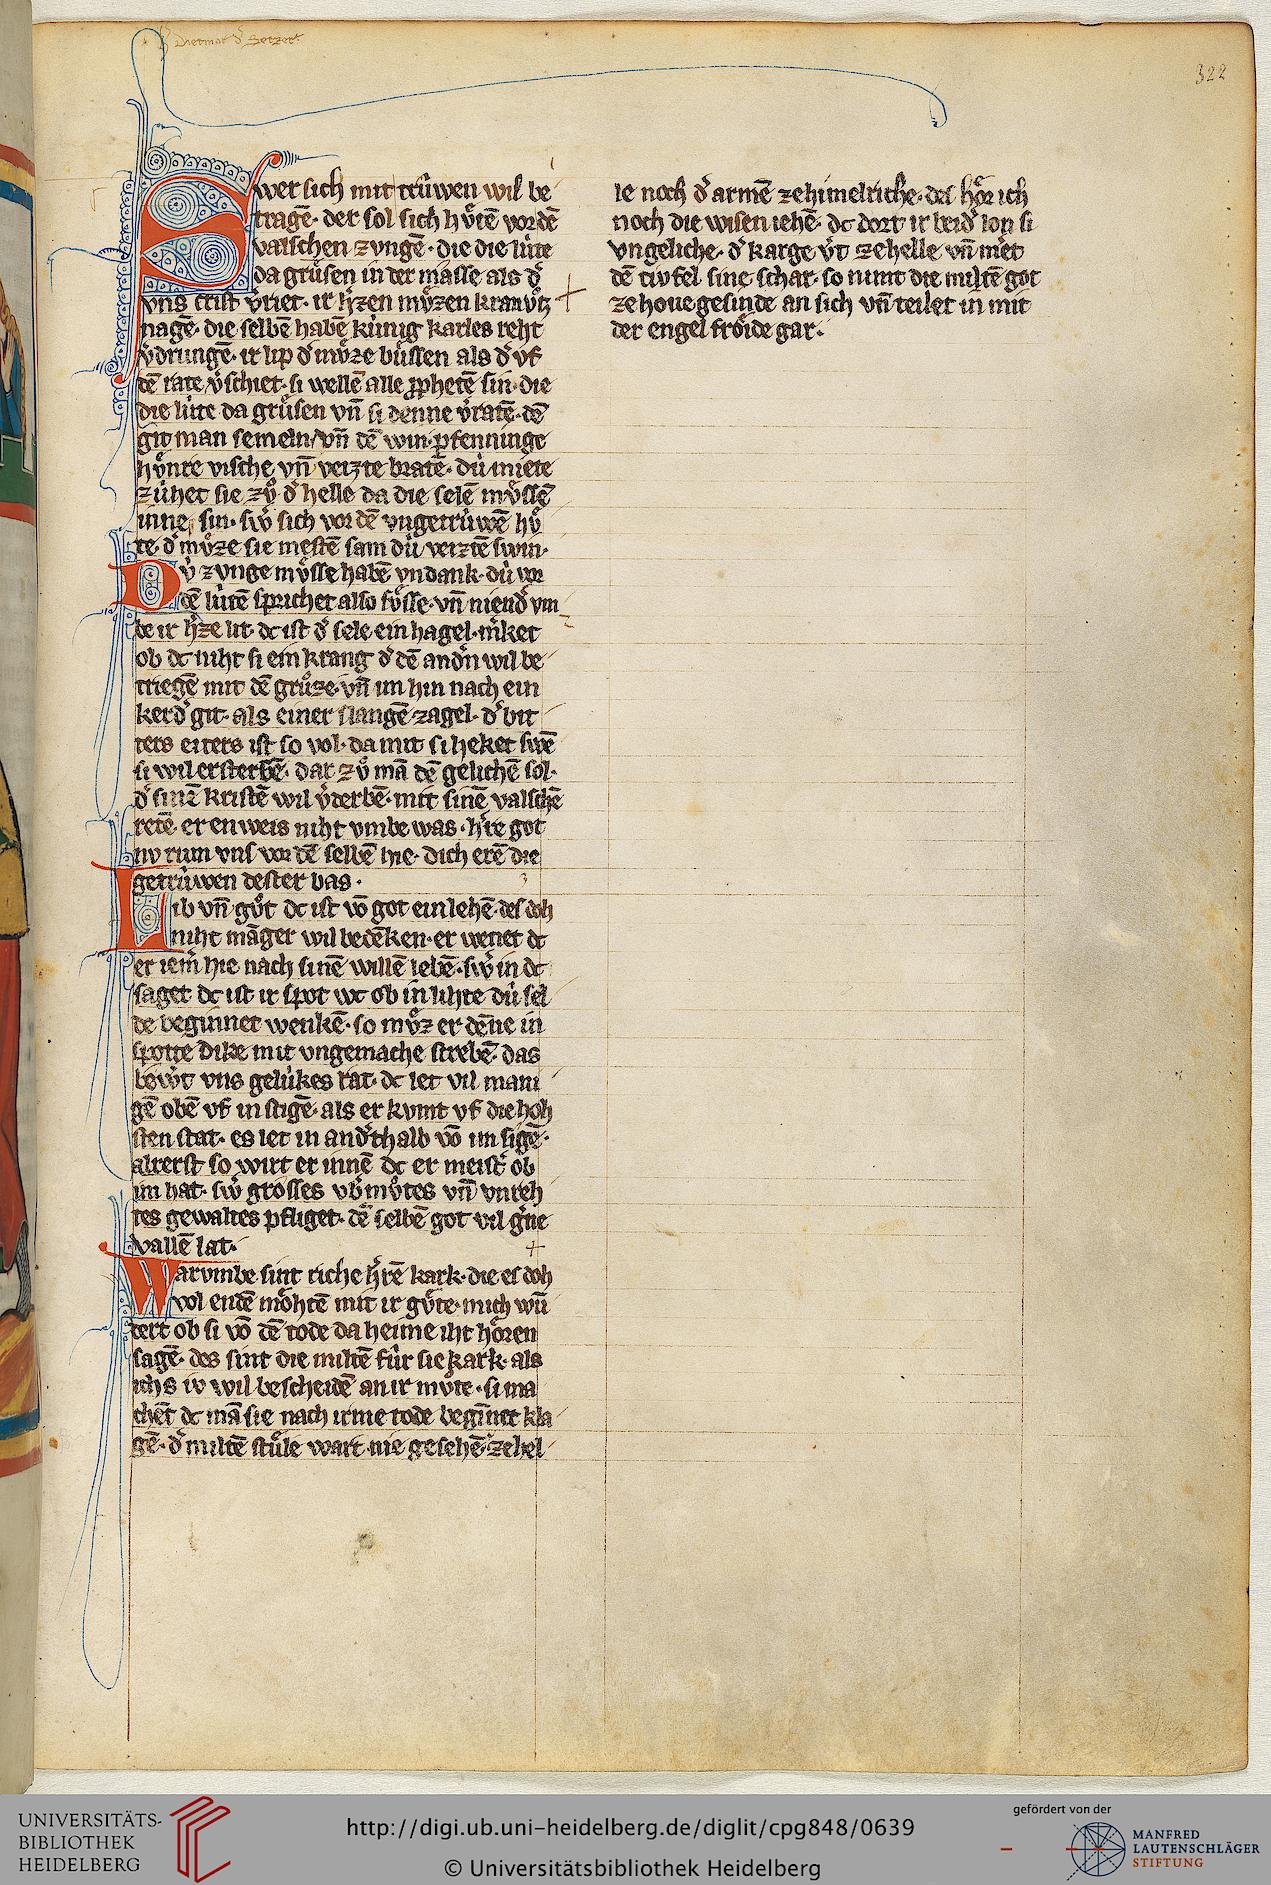 Dietmar d̾ Setzer
322
Swer sich mit trúwen wil be
tragē· der sol sich hv̊tē vor dē
valschen zvngē· die die lúte
da grůsen in der masse als d̾
vns crist v̾riet· ir h̾zen mv̊zen kranvv̊z
nagē· die selbē habē kúnig karles reht
v̾drungē· ir lip d̾ mv̊ze bůssen als d̾ vf
dē rate v̾schiet· si wellē alle ꝓphetē sin· die
die lúte da grůsen vn̄ si denne v̾ratē· dē
git man semeln vn̄ dē win· pfenninge
hv̊nre vische vn̄ veizte bratē· dú miete
zúhet sie zv̊ d̾ helle da die selē mv̊ssē
inne sin· sw̾ sich vor dē vngetrúwē hv̊
te· d̾ mv̊ze sie mestē sam dú veiztē swin·
Dv́ zvnge mv̊sse habē vndank· dú vor
dē lútē sprichet also sv̊sse· vn̄ niend̾ vm
be ir h̾ze lit· dc ist d̾ sele ein hagel· m̾ket
ob dc niht si ein krang d̾ dē andn̾ wil be
triegē mit dē grůze· vn̄ im hin nach ein
kerd̾ git· als einer slangē zagel· d̾ bit
ters eiters ist so vol· da mit si heket swē
si wil ersterbē· dar zv̊ mā dē gelichē sol·
d̾ sinē kristē wil v̾derbē· mit sinē valschē
retē· er enweis niht vmbe was· h̾re got
nv rum vns vor dē selbē hie· dich erē die
getrúwen dester bas·
Lib vn̄ gv̊t dc ist vō got ein lehē· des doh
niht māger wil bedēken· er wenet dc
er iem̾ hie nach sinē willē lebē· sw̾ in dc
saget dc ist ir spot wc ob in lihte dú sel
de beginnet wenkē· so mv̊z er dēne in
spotte dike mit vngemache strebē· das
bew̾t vns gelúkes rat· dc let vil mani
gē obē vf in stigē· als er kvmt vf die hoh
sten stat· es let in and̾thalb vō im sigē·
alrerst so wirt er innē dc er meist̾ ob
im hat· sw̾ grosses vb̾mv̊tes vn̄ vnreh
tes gewaltes pfliget· dē selbē got vil g̾ne
vallē lat·
Warvmbe sint riche h̾rē kark· die es doh
wol endē mŏhtē mit ir gv̊te· mich wū
dert ob si vō dē tode da heime iht hŏren
sagē· des sint die miltē fúr sie kark· als
ichs iv wil bescheidē an ir mv̊te· si ma
chēt dc mā sie nach irme tode begīnet kla
gē· d̾ miltē stůle wart nie gesehē zehel
le noch d̾ armē ze himelriche· des hŏr ich
noch die wisen iehē· dc dort ir beid̾ lon si
vngeliche· d̾ karge v̾t ze helle vn̄ mēt
dē tivfel sine schar· so nimt die miltē got
ze hove gesinde an sich vn̄ teilet in mit
der engel frŏide gar·
UNIVERSITÄTS-
BIBLIOTHEK
HEIDELBERG
http://digi.ub.uni-heidelberg.de/diglit/cpg848/0639
© Universitätsbibliothek Heidelberg
gefördert von der
MANFRED
LAUTENSCHLÄGER
STIFTUNG